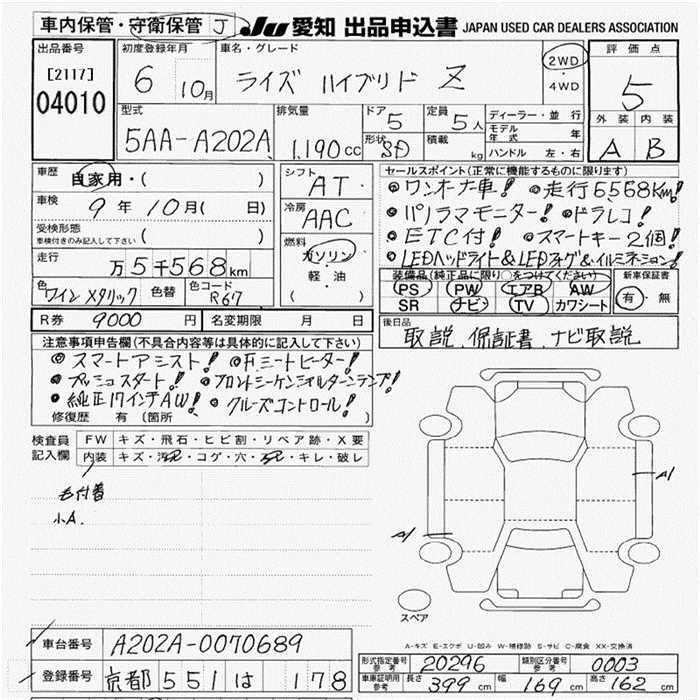 車内保管・守衛保管 J JU 愛知 出品申込書 JAPAN USED CAR DEALERS ASSOCIATION
出品番号 初度登録年月 車名・グレード 評価点
[2117] 6 10月 ライズ ハイブリド Z 2WD・4WD 5
04010
型式 排気量 ドア 定員 ディーラー・並行 外装 内装
5AA-A202A 1,190cc 5 5人 モデル年式 年
形状 SD 積載 kg ハンドル 左・右 A B
車歴 自家用・( ) シフト AT セールスポイント(正常に機能するものに限ります)
車検 9年10月( 日) 冷房 AAC ◎ワンオーナー車! ◎走行6568Km!
受検形態 ( ) ◎パノラマモニター! ◎ドラレコ!
車検付きのみ記入して下さい
燃料 ガソリン・軽・油 ◎ETC付! ◎スマートキー2個!
走行 万5千568km ◎LEDヘッドライト&LEDフォグ&イルミネーション!
色 ワインメタリック 色替 色コード R67 装備品(純正品に限り○をつけてください) 新車保証書
PS PW エアB AW 有・無
SR ナビ TV カワシート
R券 9000円 名変期限 月 日 後日品
取説、保証書、ナビ取説
注意事項申告欄(不具合内容等は具体的に記入して下さい)
◎スマートアシスト! ◎F.ミートヒーター!
◎プッシュスタート! ◎フロントシーケンシャルターンランプ!
◎純正17インチAW! ◎クルーズコントロール!
修復歴 有(箇所 )
検査員記入欄 FW キズ・飛石・ヒビ割・リペア跡・X要
内装 キズ・汚れ・コゲ・穴・スレ・キレ・破レ
毛付着
小A.
A1
A1
スペア
A-キズ E-エクボ U-凹み W-補修跡 S-サビ C-腐食 XX-交換済
車台番号 A202A-0070689
型式指定番号 参考 20296 類別区分番号 参考 0003
登録番号 京都 551 は 178
車庫証明用 参考 長さ 399cm 幅 169cm 高さ 162cm